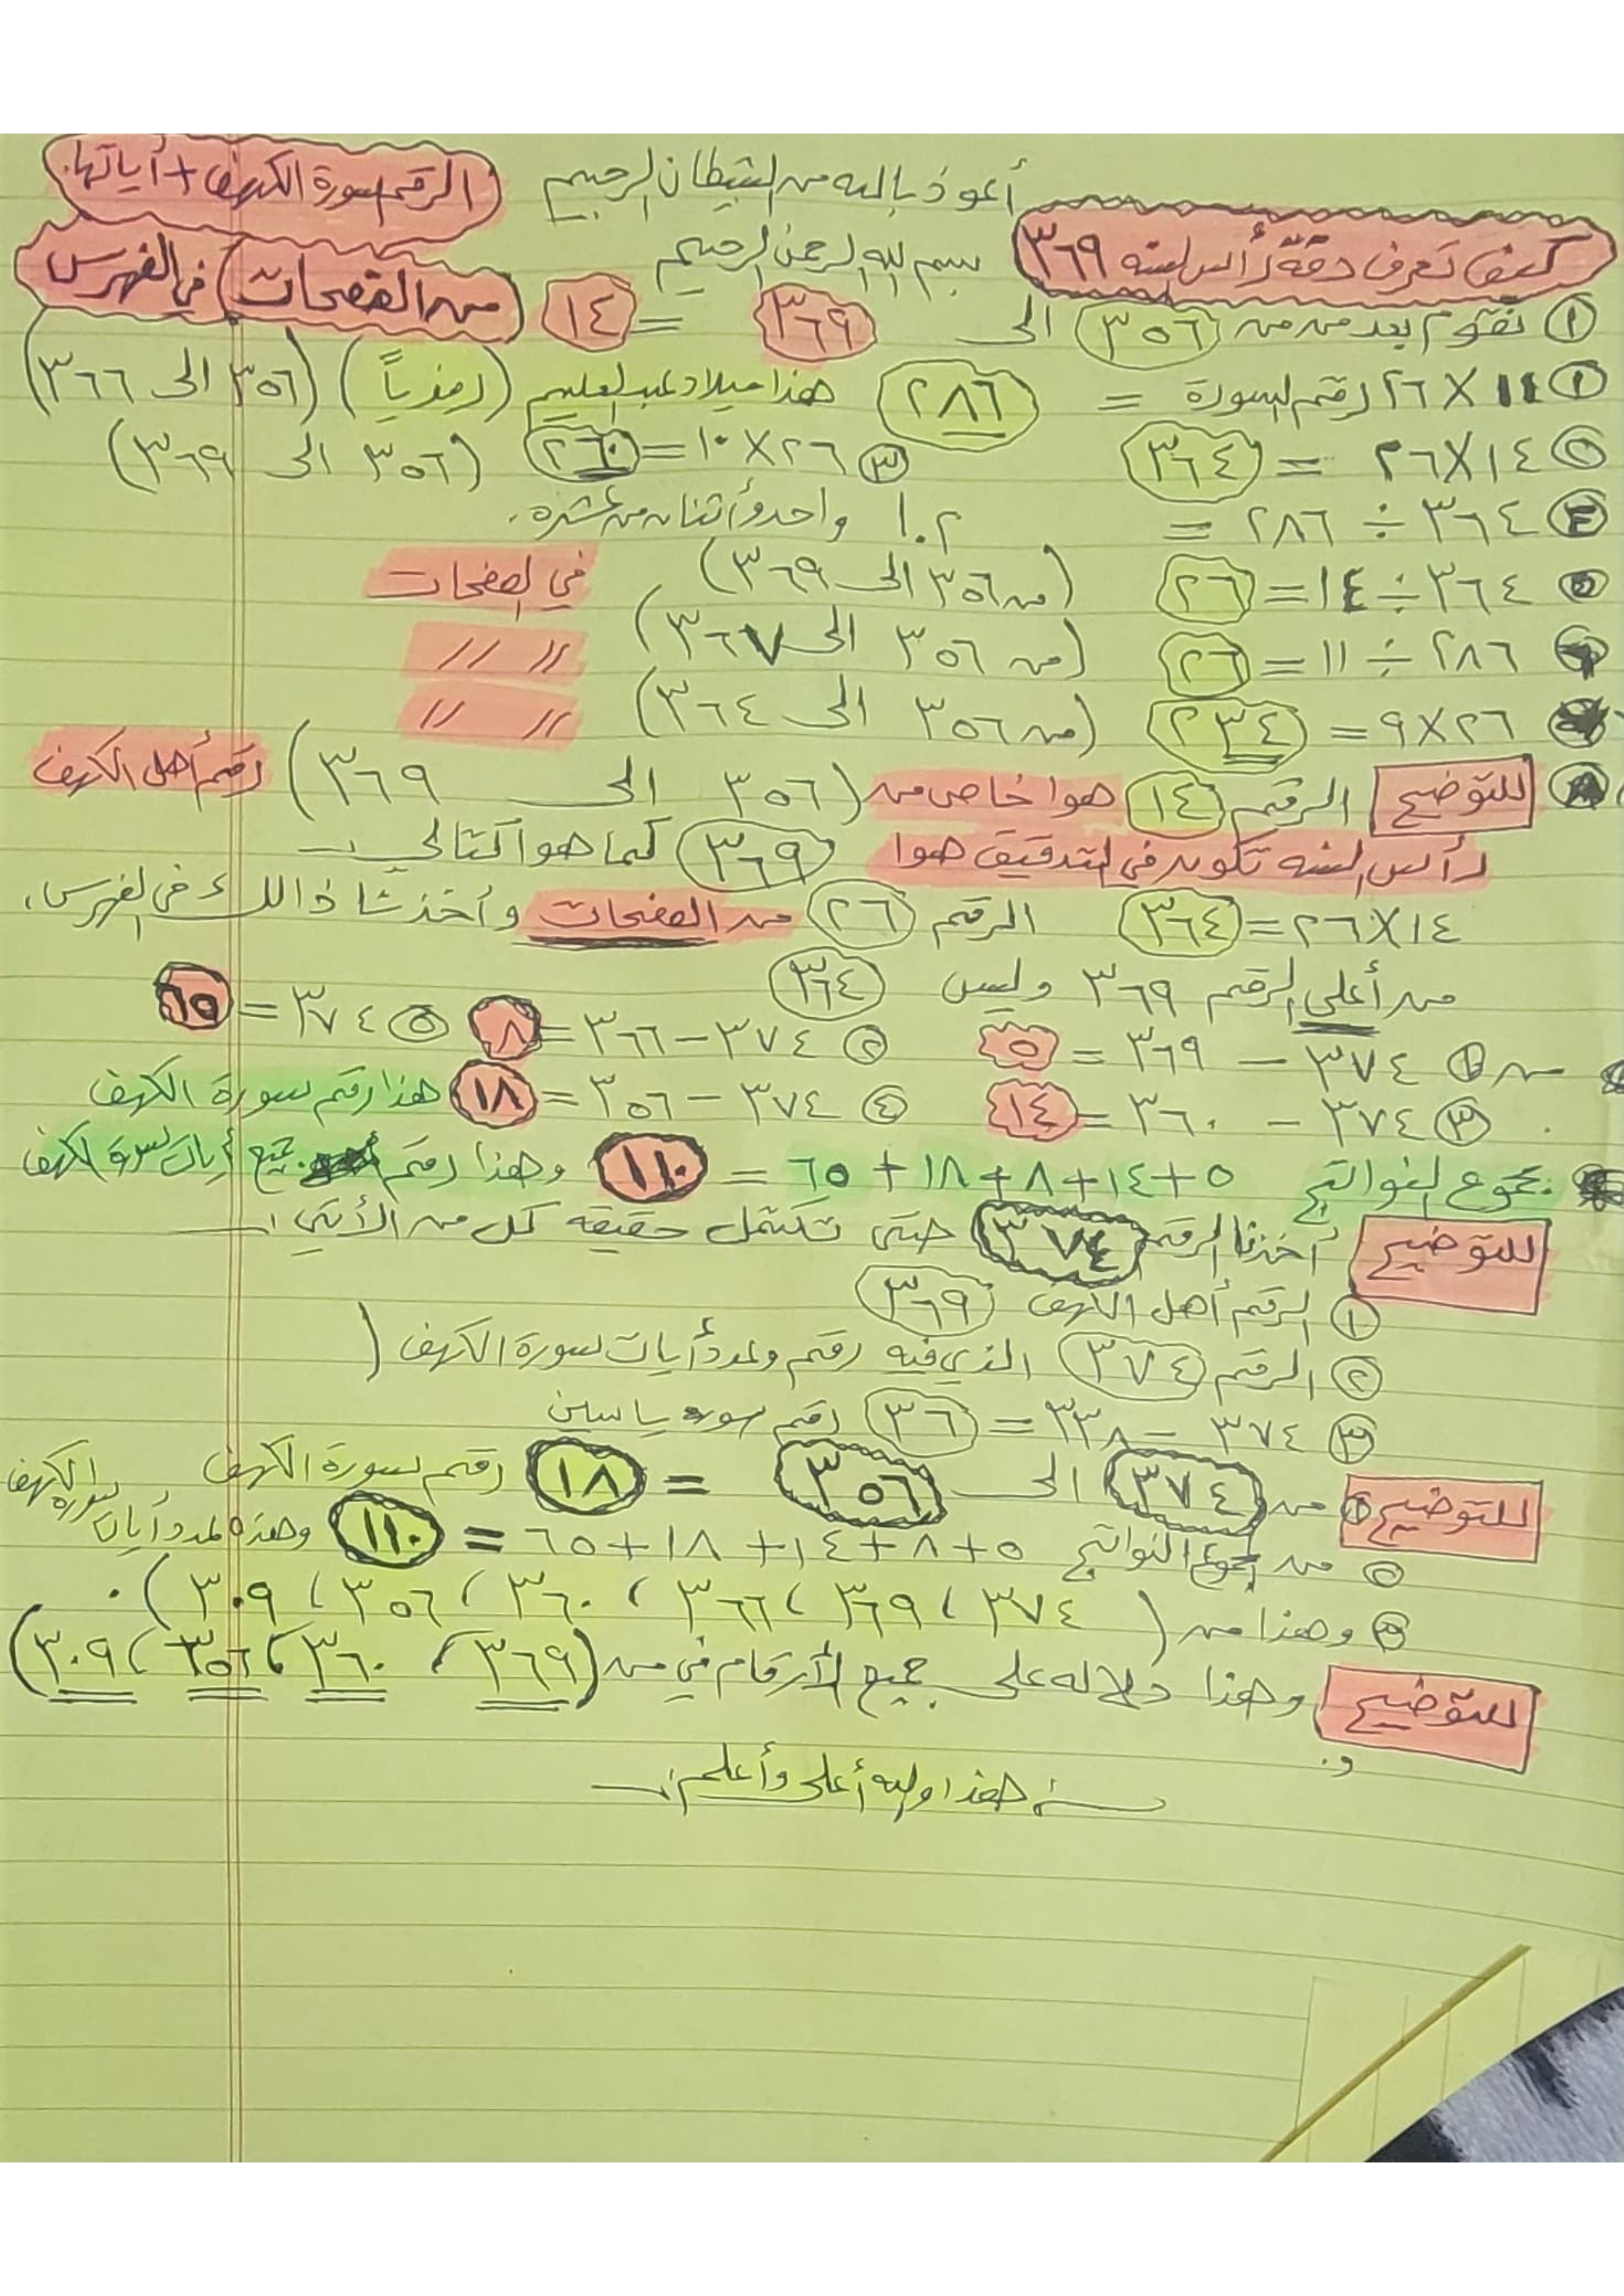 أعوذ بالله من الشيطان الرجيم
الرقم سورة الكهف + أياتها.
كيف تعرف دقة رأس السنه ٣٦٩
بسم الله الرحمن الرحيم
من الصفحات) في الفهرس
١ نقوم بعد من من ٣٥٦ الى ٣٦٩ = ١٤
١ ١١ × ٢٦ رقم السورة = ٢٨٦ هذا ميلاد عبدالعليم (رمزياً) (٣٥٦ الى ٣٦٦)
٢ ١٤ × ٢٦ = ٣٦٤ ٣ ٢٦ × ١٠ = ٢٦٠ (٣٥٦ الى ٣٦٩)
٤ ٣٦٤ ÷ ٢٨٦ = ١.٢ واحد وأثنان من عشره.
٥ ٣٦٤ ÷ ١٤ = ٢٦ (من ٣٥٦ الى ٣٦٩) في الصفحات
٦ ٢٨٦ ÷ ١١ = ٢٦ (من ٣٥٦ الى ٣٦٧) // //
٢٦ × ٩ = ٢٣٤ (من ٣٥٦ الى ٣٦٤) // //
٨ للتوضيح الرقم ١٤ هوا خاص من (٣٥٦ الى ٣٦٩) رقم أهل الكهف
رأس السنه تكون في التدقيق هوا ٣٦٩ كما هوا كتالي :-
١٤ × ٢٦ = ٣٦٤ الرقم ٢٦ من الصفحات وأخذنا ذالك في الفهرس،
من أعلى الرقم ٣٦٩ وليس ٣٦٤
١ ٣٧٤ - ٣٦٩ = ٥ ٢ ٣٧٤ - ٣٦٦ = ٨ ٥ ٣٧٤ = ٦٥
٣ ٣٧٤ - ٣٦٠ = ١٤ ٤ ٣٧٤ - ٣٥٦ = ١٨ هذا رقم سورة الكهف
مجموع النواتج ٥ + ١٤ + ٨ + ١٨ + ٦٥ = ١١٠ وهذا رقم جميع أيات سورة الكهف
للتوضيح أخذنا الرقم ٣٧٤ حتى تكتمل حقيقه كل من الأتي :-
١ الرقم أهل الكهف ٣٦٩
٢ الرقم ٣٧٤ الذي فيه رقم وعدد أيات سورة الكهف )
٣ ٣٧٤ - ٣٣٨ = ٣٦ رقم سوره ياسين
للتوضيح ١ من ٣٧٤ الى ٣٥٦ = ١٨ رقم سورة الكهف
٢ من مجموع النواتج ٥ + ٨ + ١٤ + ١٨ + ٦٥ = ١١٠ وهذه عدد أيات سورة الكهف
٣ وهذا من ( ٣٧٤ ، ٣٦٩ ، ٣٦٦ ، ٣٦٠ ، ٣٥٦ ، ٣٠٩ ) .
للتوضيح وهذا دلاله على جميع الأرقام في من (٣٦٩ ، ٣٦٠ ، ٣٥٦ ، ٣٠٩)
و.
هذا والله أعلى وأعلم